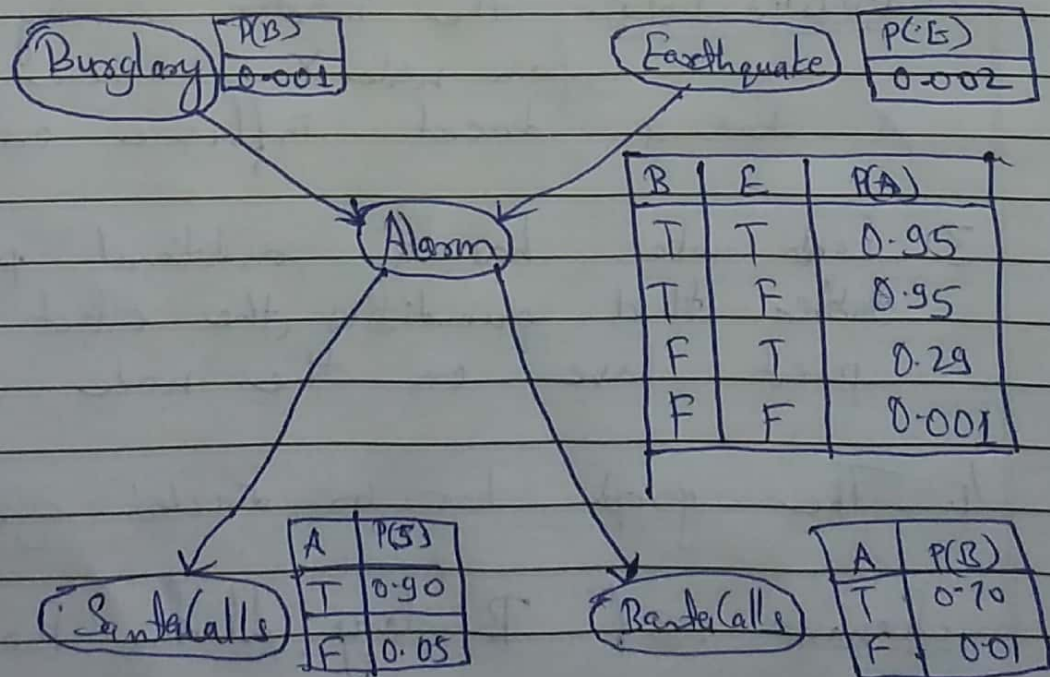 Burglary
P(B)
0.001
Earthquake
P(E)
0.002
Alarm
B E P(A)
T T 0.95
T F 0.95
F T 0.29
F F 0.001
SantaCalls
A P(S)
T 0.90
F 0.05
BantaCalls
A P(B)
T 0.70
F 0.01